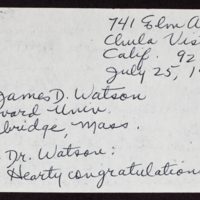 741 Elm A
Chula Vis
Calif. 92
July 25, 1
James D. Watson
vard Univ.
bridge, Mass.
Dr. Watson:
Hearty congratulation